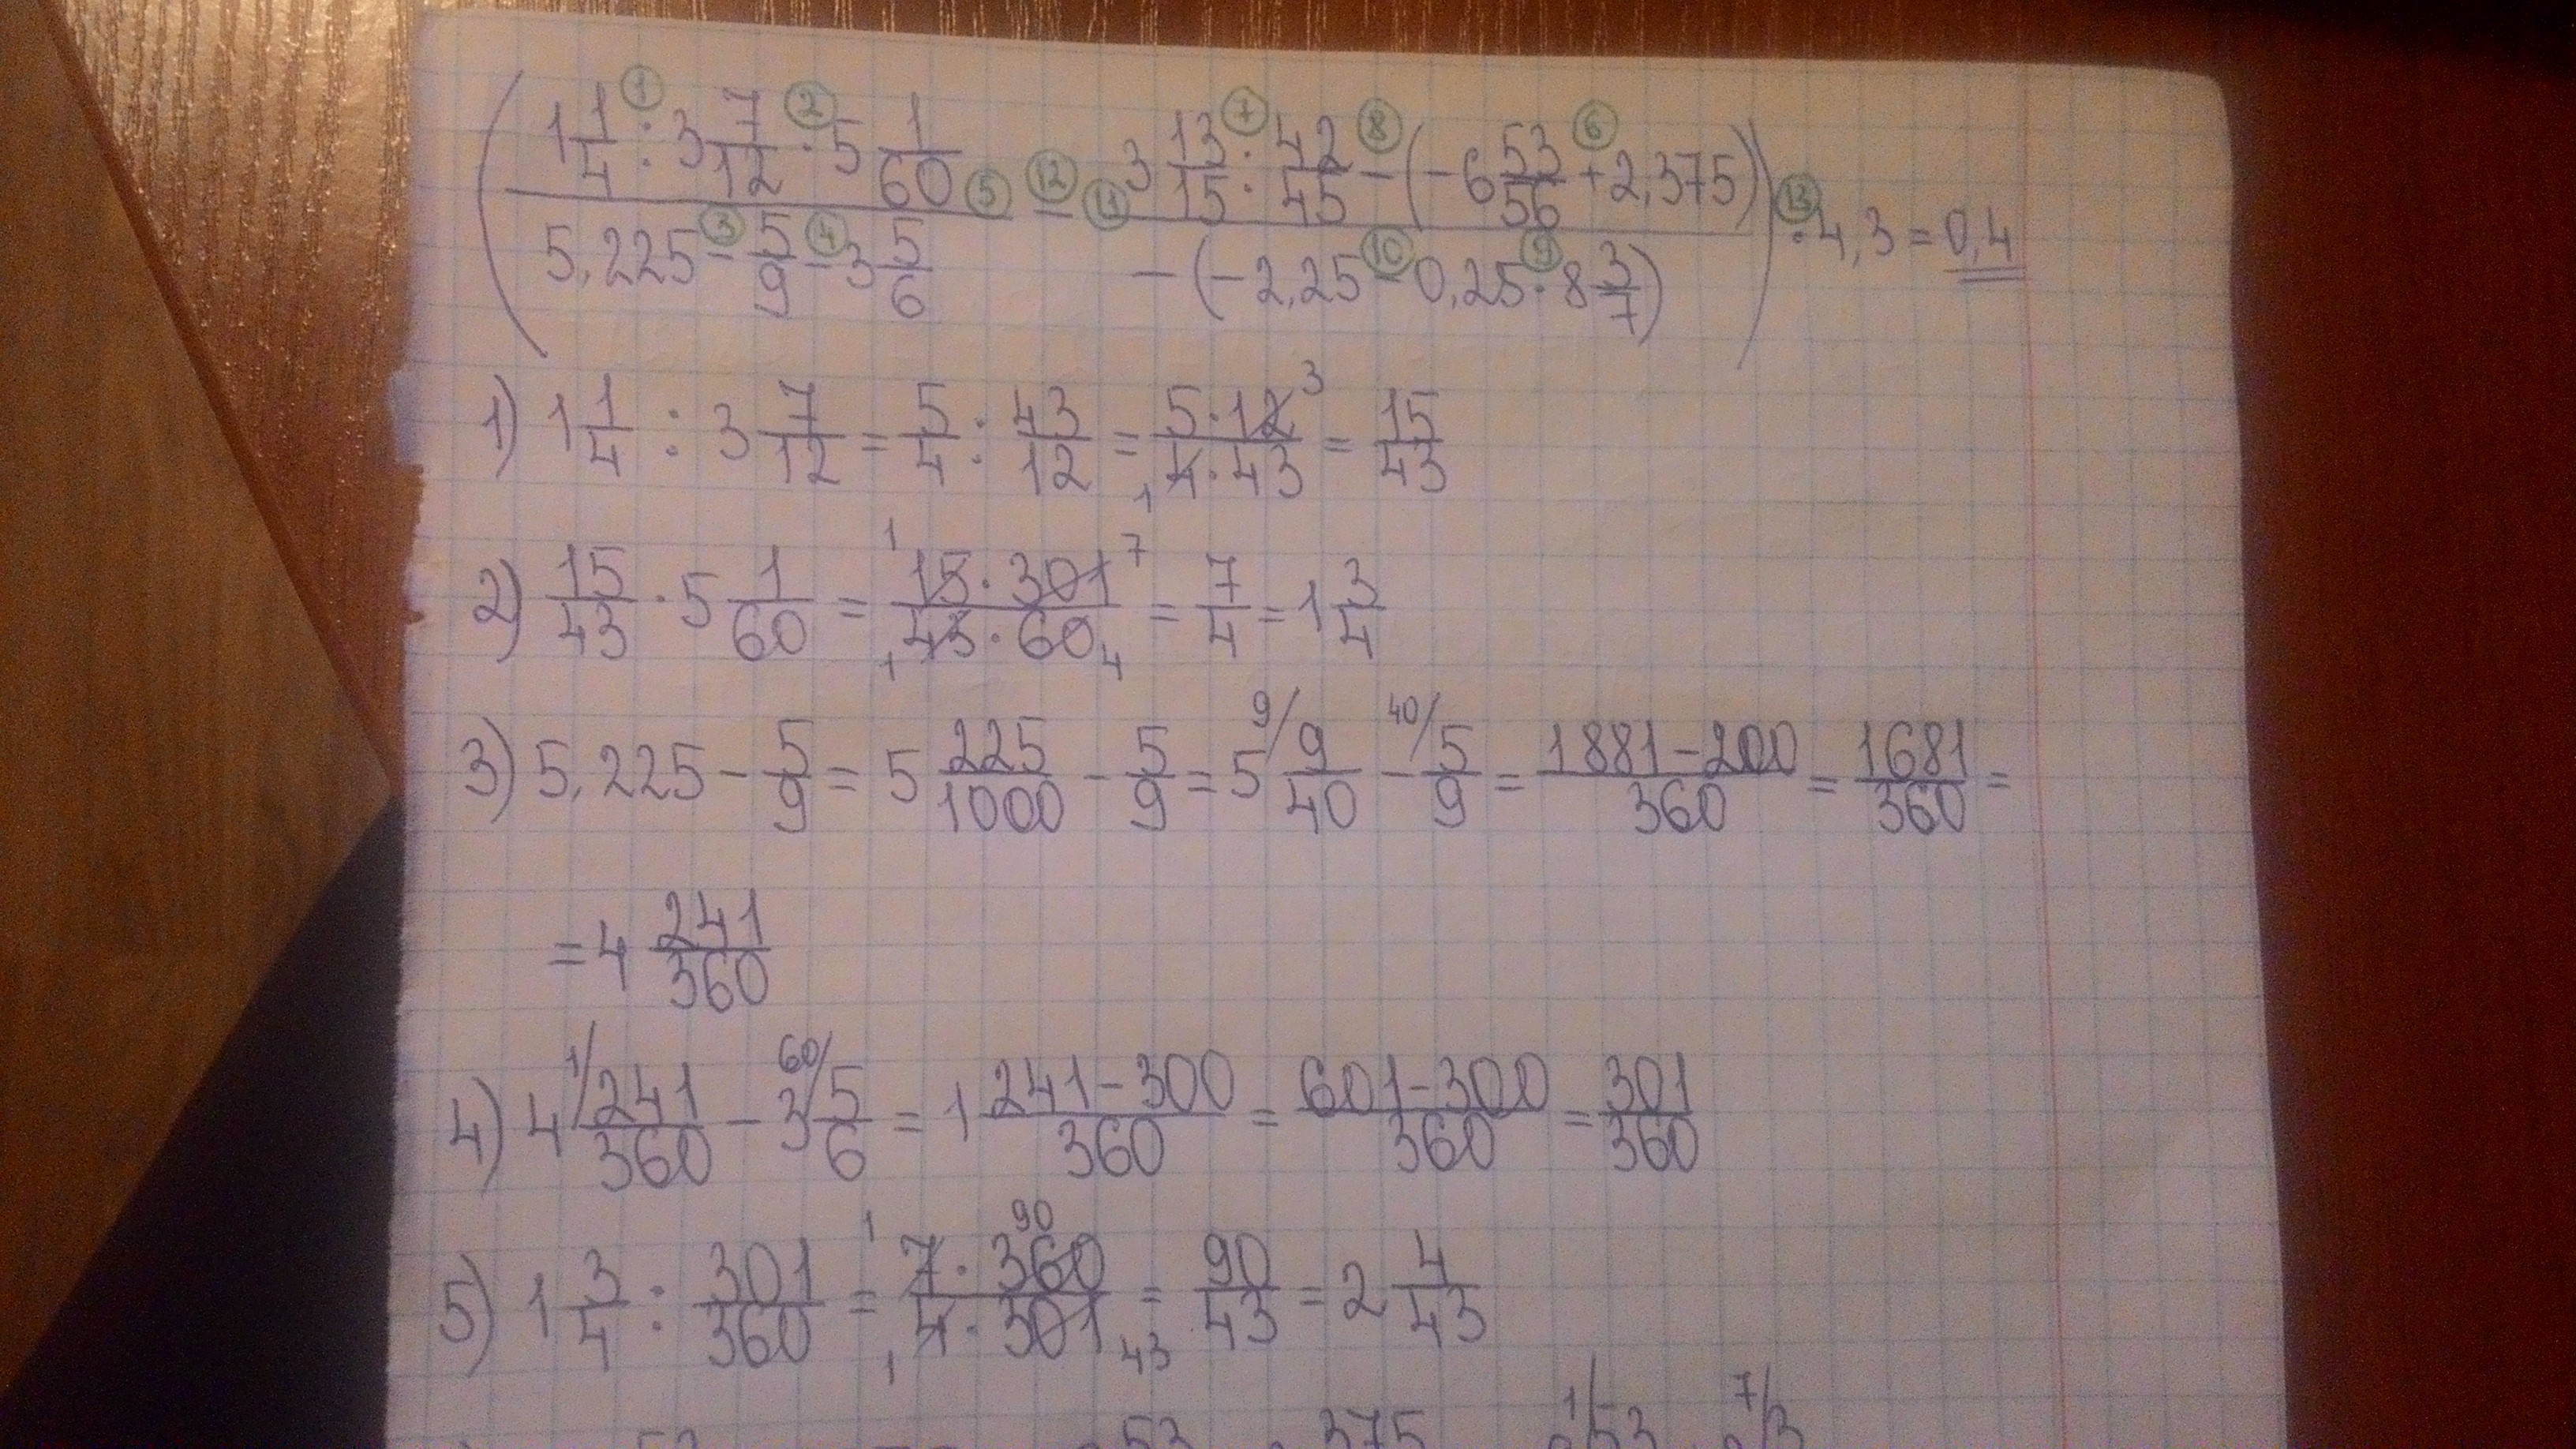 (1 1/4 : 3 7/12 · 5 1/60 / 5,225 - 5/9 - 3 5/6 - 3 13/15 · 42/45 - (-6 53/56 + 2,375) / -(-2,25 - 0,25 · 8 3/7)) · 4,3 = 0,4
① ② ③ ④ ⑤ ⑥ ⑦ ⑧ ⑨ ⑩ ⑪ ⑫ ⑬
1) 1 1/4 : 3 7/12 = 5/4 : 43/12 = 5·12 3/1 4·43 = 15/43
2) 15/43 · 5 1/60 = 1 15·301 7/1 43·60 4 = 7/4 = 1 3/4
3) 5,225 - 5/9 = 5 225/1000 - 5/9 = 5 9/ 9/40 - 40/ 5/9 = 1881-200/360 = 1681/360 =
= 4 241/360
4) 4 1/ 241/360 - 3 60/ 5/6 = 1 241-300/360 = 601-300/360 = 301/360
5) 1 3/4 : 301/360 = 1 7·360 90/1 4·301 43 = 90/43 = 2 4/43
53 53 375 1/53 7/3